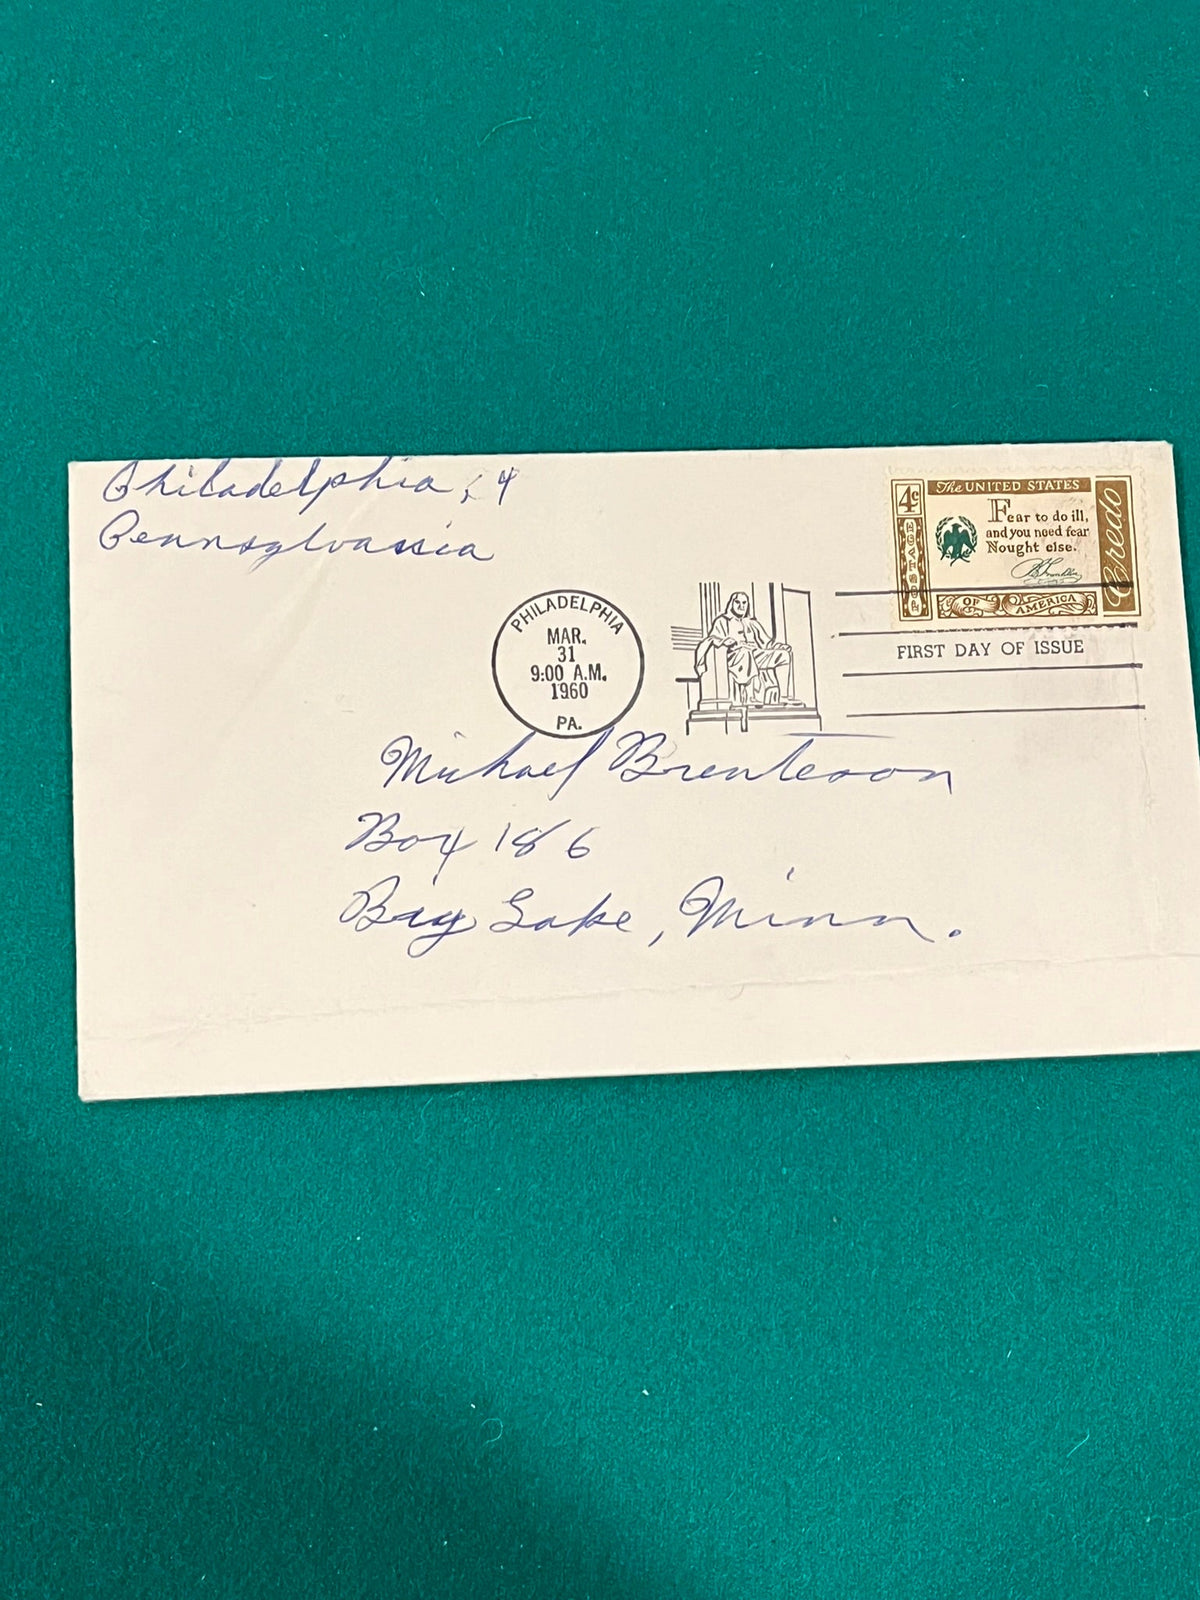 Philadelphia, 4
Pennsylvania
4¢
The UNITED STATES
Fear to do ill,
and you need fear
Nought else.
B Franklin
Credo
OF AMERICA
PHILADELPHIA
MAR.
31
9:00 A.M.
1960
PA.
FIRST DAY OF ISSUE
Michael Brenteson
Box 186
Big Lake, Minn.